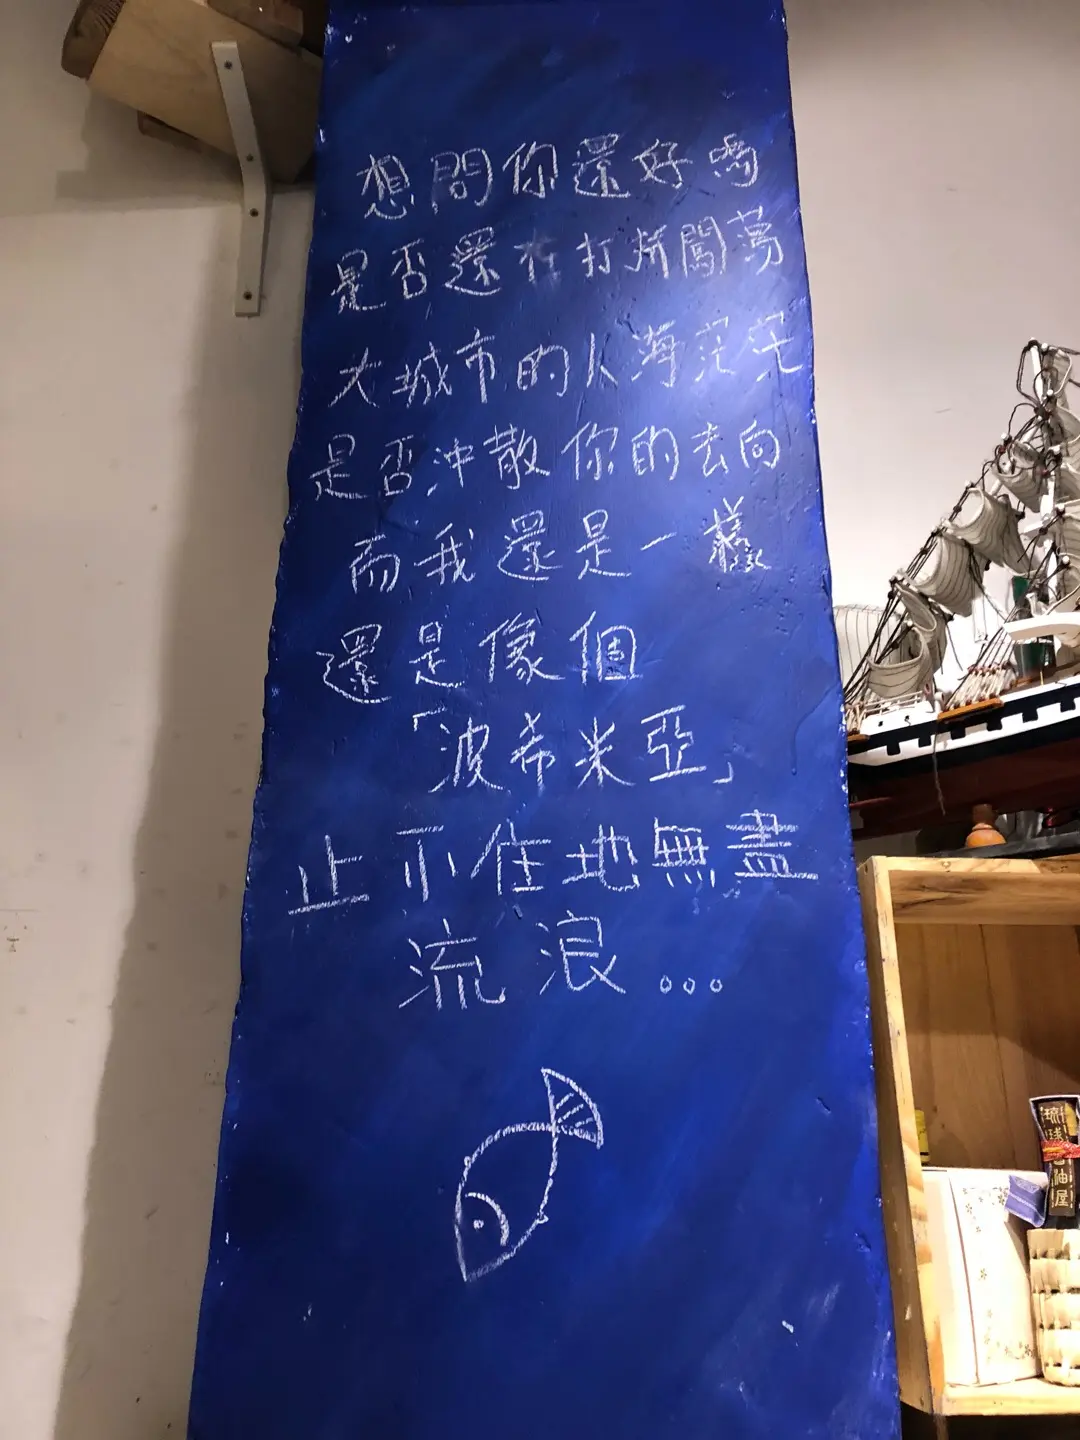 想問你還好嗎
是否還在打拼闖蕩
大城市的人海茫茫
是否沖散你的去向
而我還是一樣
還是像個
「波希米亞」
止不住地無盡
流浪。。。
琉球
油屋